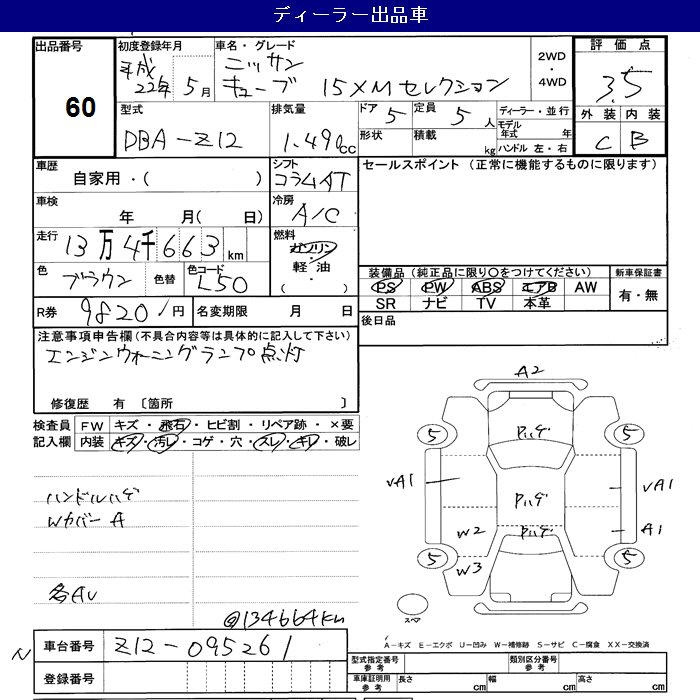 ディーラー出品車
出品番号 60
初度登録年月 平成 22年 5月
車名・グレード ニッサン キューブ 15XMセレクション
2WD ・ 4WD
評価点 3.5
外装 内装
C B
型式 DBA-Z12
排気量 1.490cc
ドア 5 定員 5人
形状 積載 kg
ディーラー・並行
モデル年式 年
ハンドル 左・右
車歴 自家用・( )
シフト コラムAT
セールスポイント (正常に機能するものに限ります)
車検 年 月( 日)
冷房 A/C
走行 13万4千663km
燃料 ガソリン・軽油・( )
色 ブラウン 色替 色コード L50
装備品 (純正品に限り○をつけてください)
PS PW ABS エアB AW
SR ナビ TV 本革
新車保証書
有・無
R券 9820円 名変期限 月 日
後日品
注意事項申告欄 (不具合内容等は具体的に記入して下さい)
エンジンウォーニングランプ点灯
修復歴 有 〔箇所 〕
検査員記入欄
FW キズ・飛石・ヒビ割・リペア跡・×要
内装 キズ・汚レ・コゲ・穴・スレ・キレ・破レ
ハンドルハゲ
Wカバー A
各AU
@134664km
A2
5 ハゲ 5
UA1 ハゲ UA1
W2 ハゲ A1
5 W3 5
スペア
A-キズ E-エクボ U-凹み W-補修跡 S-サビ C-腐食 XX-交換済
N 車台番号 Z12-095261
登録番号
型式指定番号 参考 類別区分番号 参考
車庫証明用 参考 長さ cm 幅 cm 高さ cm